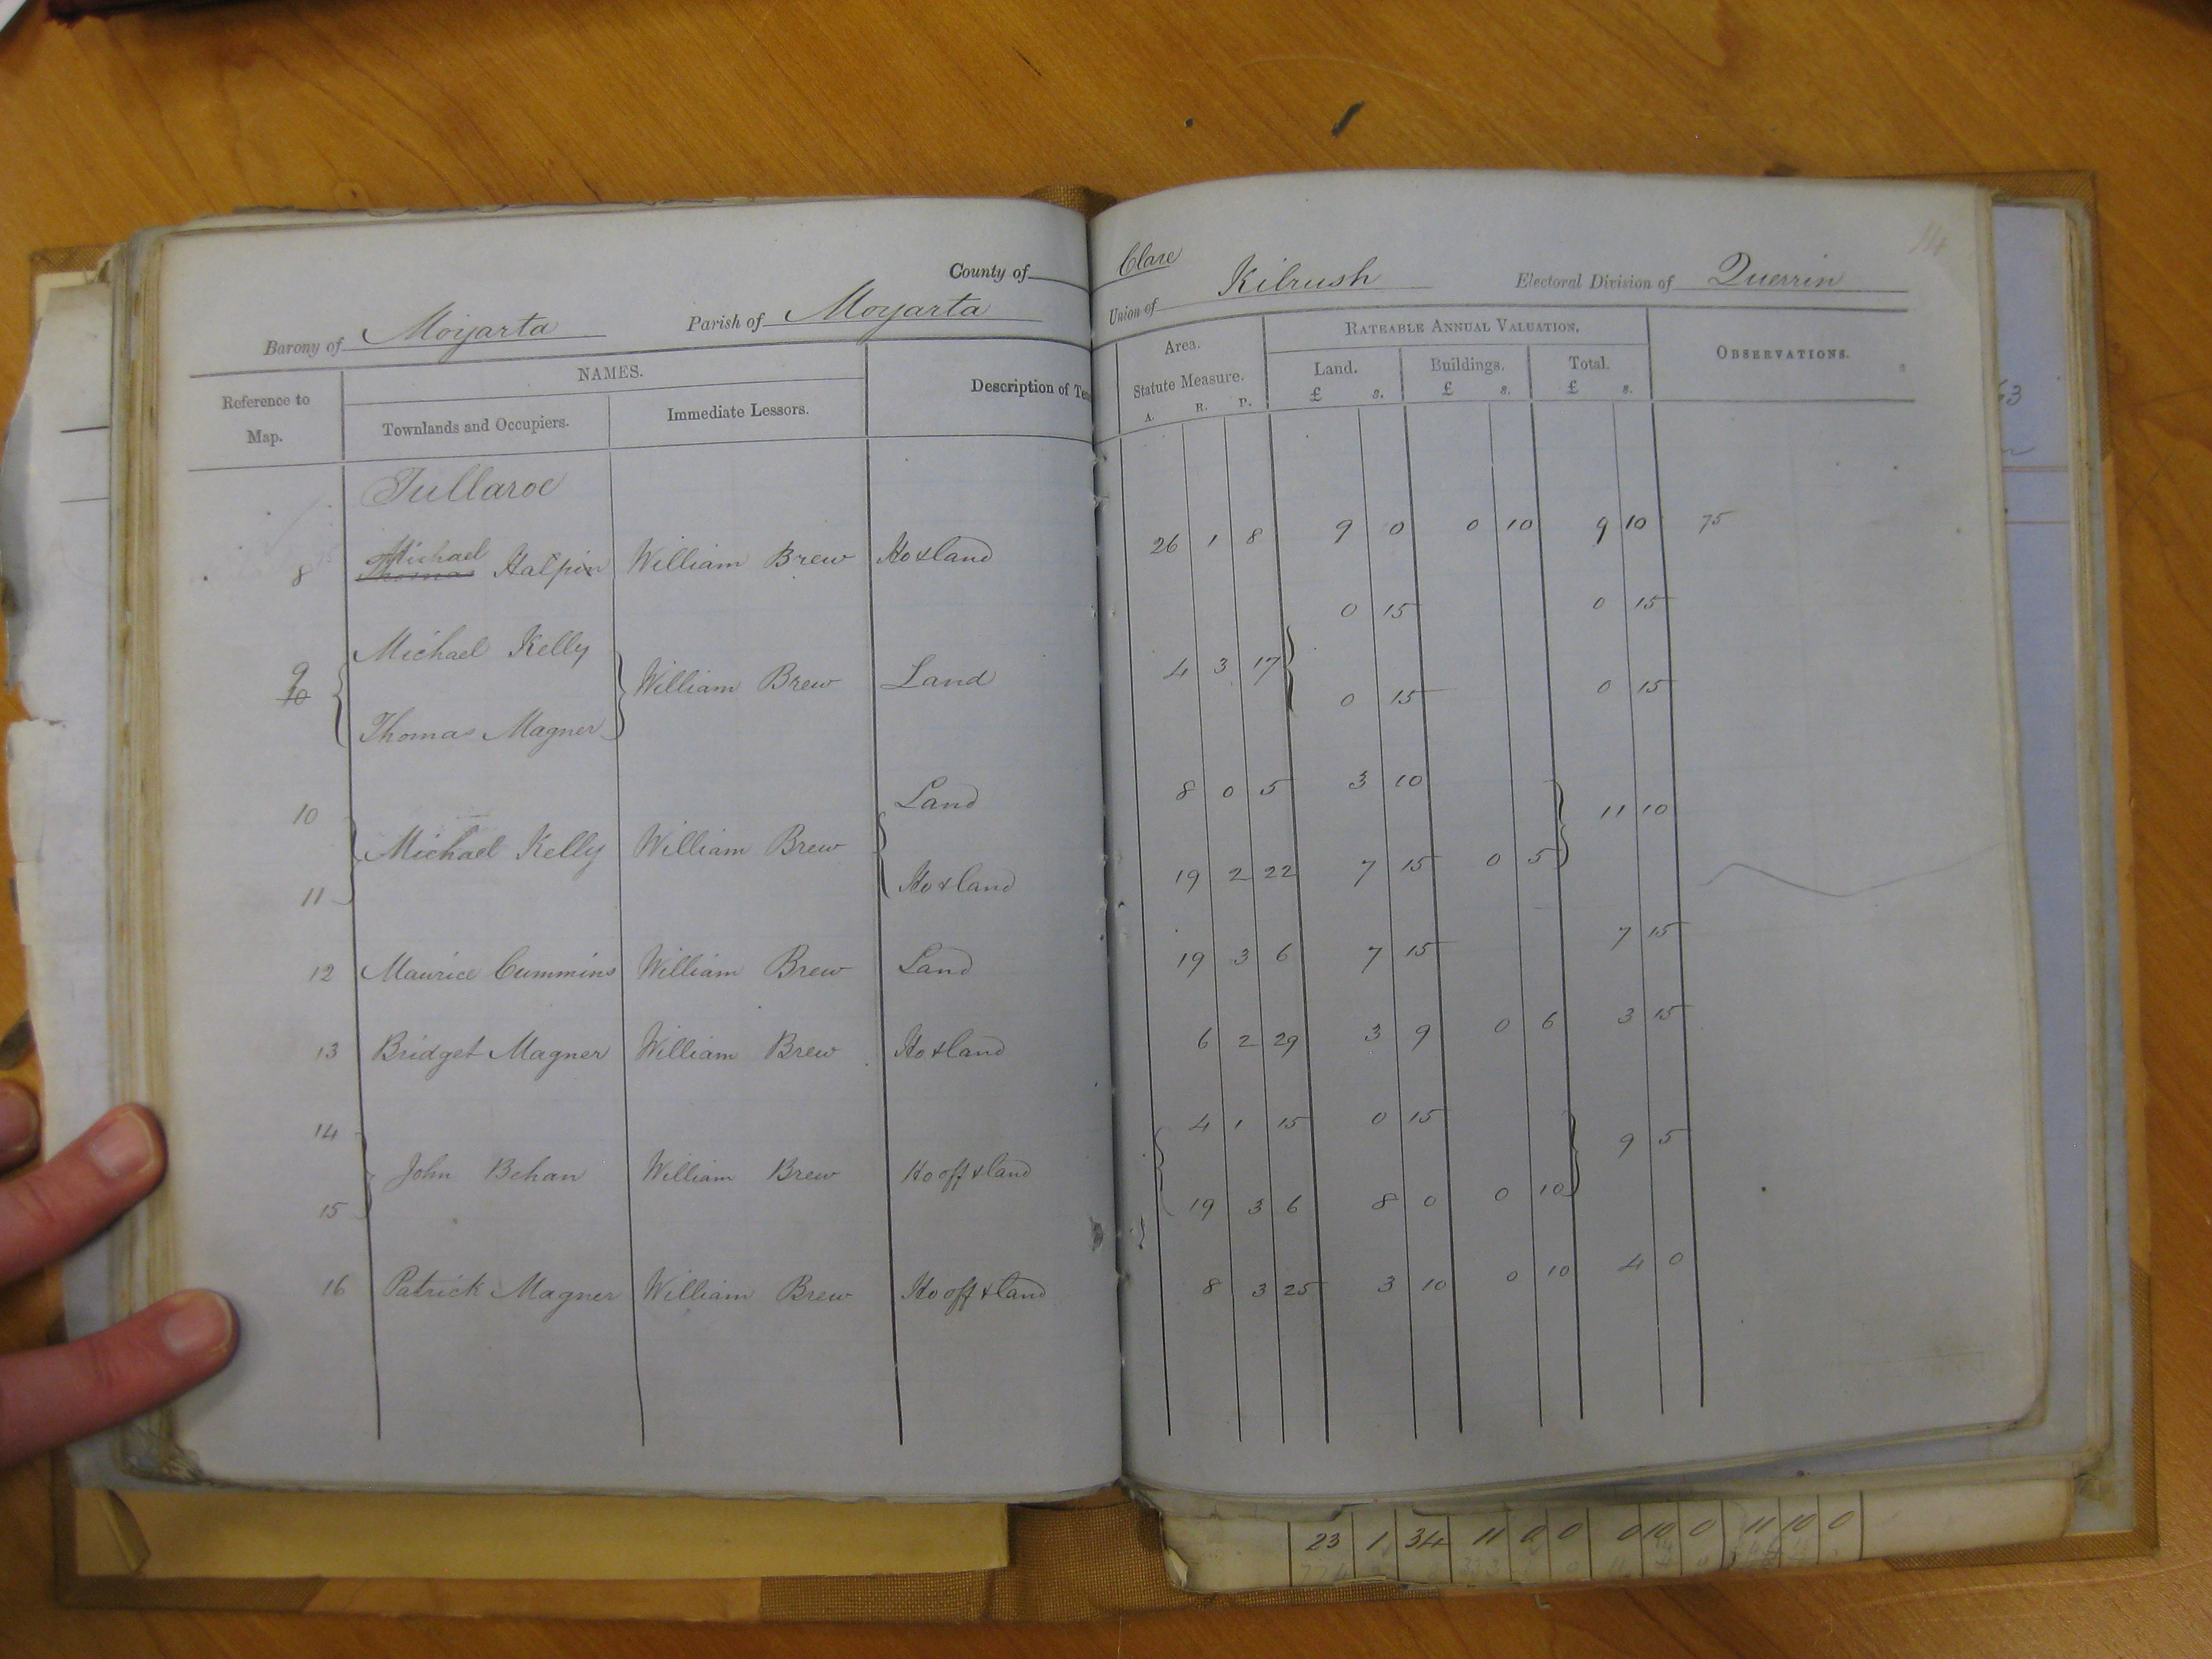 County of Clare
Barony of Moyarta Parish of Moyarta Union of Kilrush Electoral Division of Querrin
Reference to Map. NAMES. Description of Ten Area. RATEABLE ANNUAL VALUATION. OBSERVATIONS.
Townlands and Occupiers. Immediate Lessors. Statute Measure. Land. Buildings. Total.
A. R. P. £ s. £ s. £ s.
Tullaroe
Michael
8 Thomas Halpin William Brew Ho & land 26 1 8 9 0 0 10 9 10 75
Michael Kelly 0 15 0 15
9 10 William Brew Land 4 3 17
Thomas Magner 0 15 0 15
10 Land 8 0 5 3 10 11 10
Michael Kelly William Brew
11 Ho & land 19 2 22 7 15 0 5
12 Maurice Cummins William Brew Land 19 3 6 7 15 7 15
13 Bridget Magner William Brew Ho & land 6 2 29 3 9 0 6 3 15
14 4 1 15 0 15 9 5
John Behan William Brew Ho off & land
15 19 3 6 8 0 0 10
16 Patrick Magner William Brew Ho off & land 8 3 25 3 10 0 10 4 0
23 1 34 11 0 0 0 10 0 11 10 0